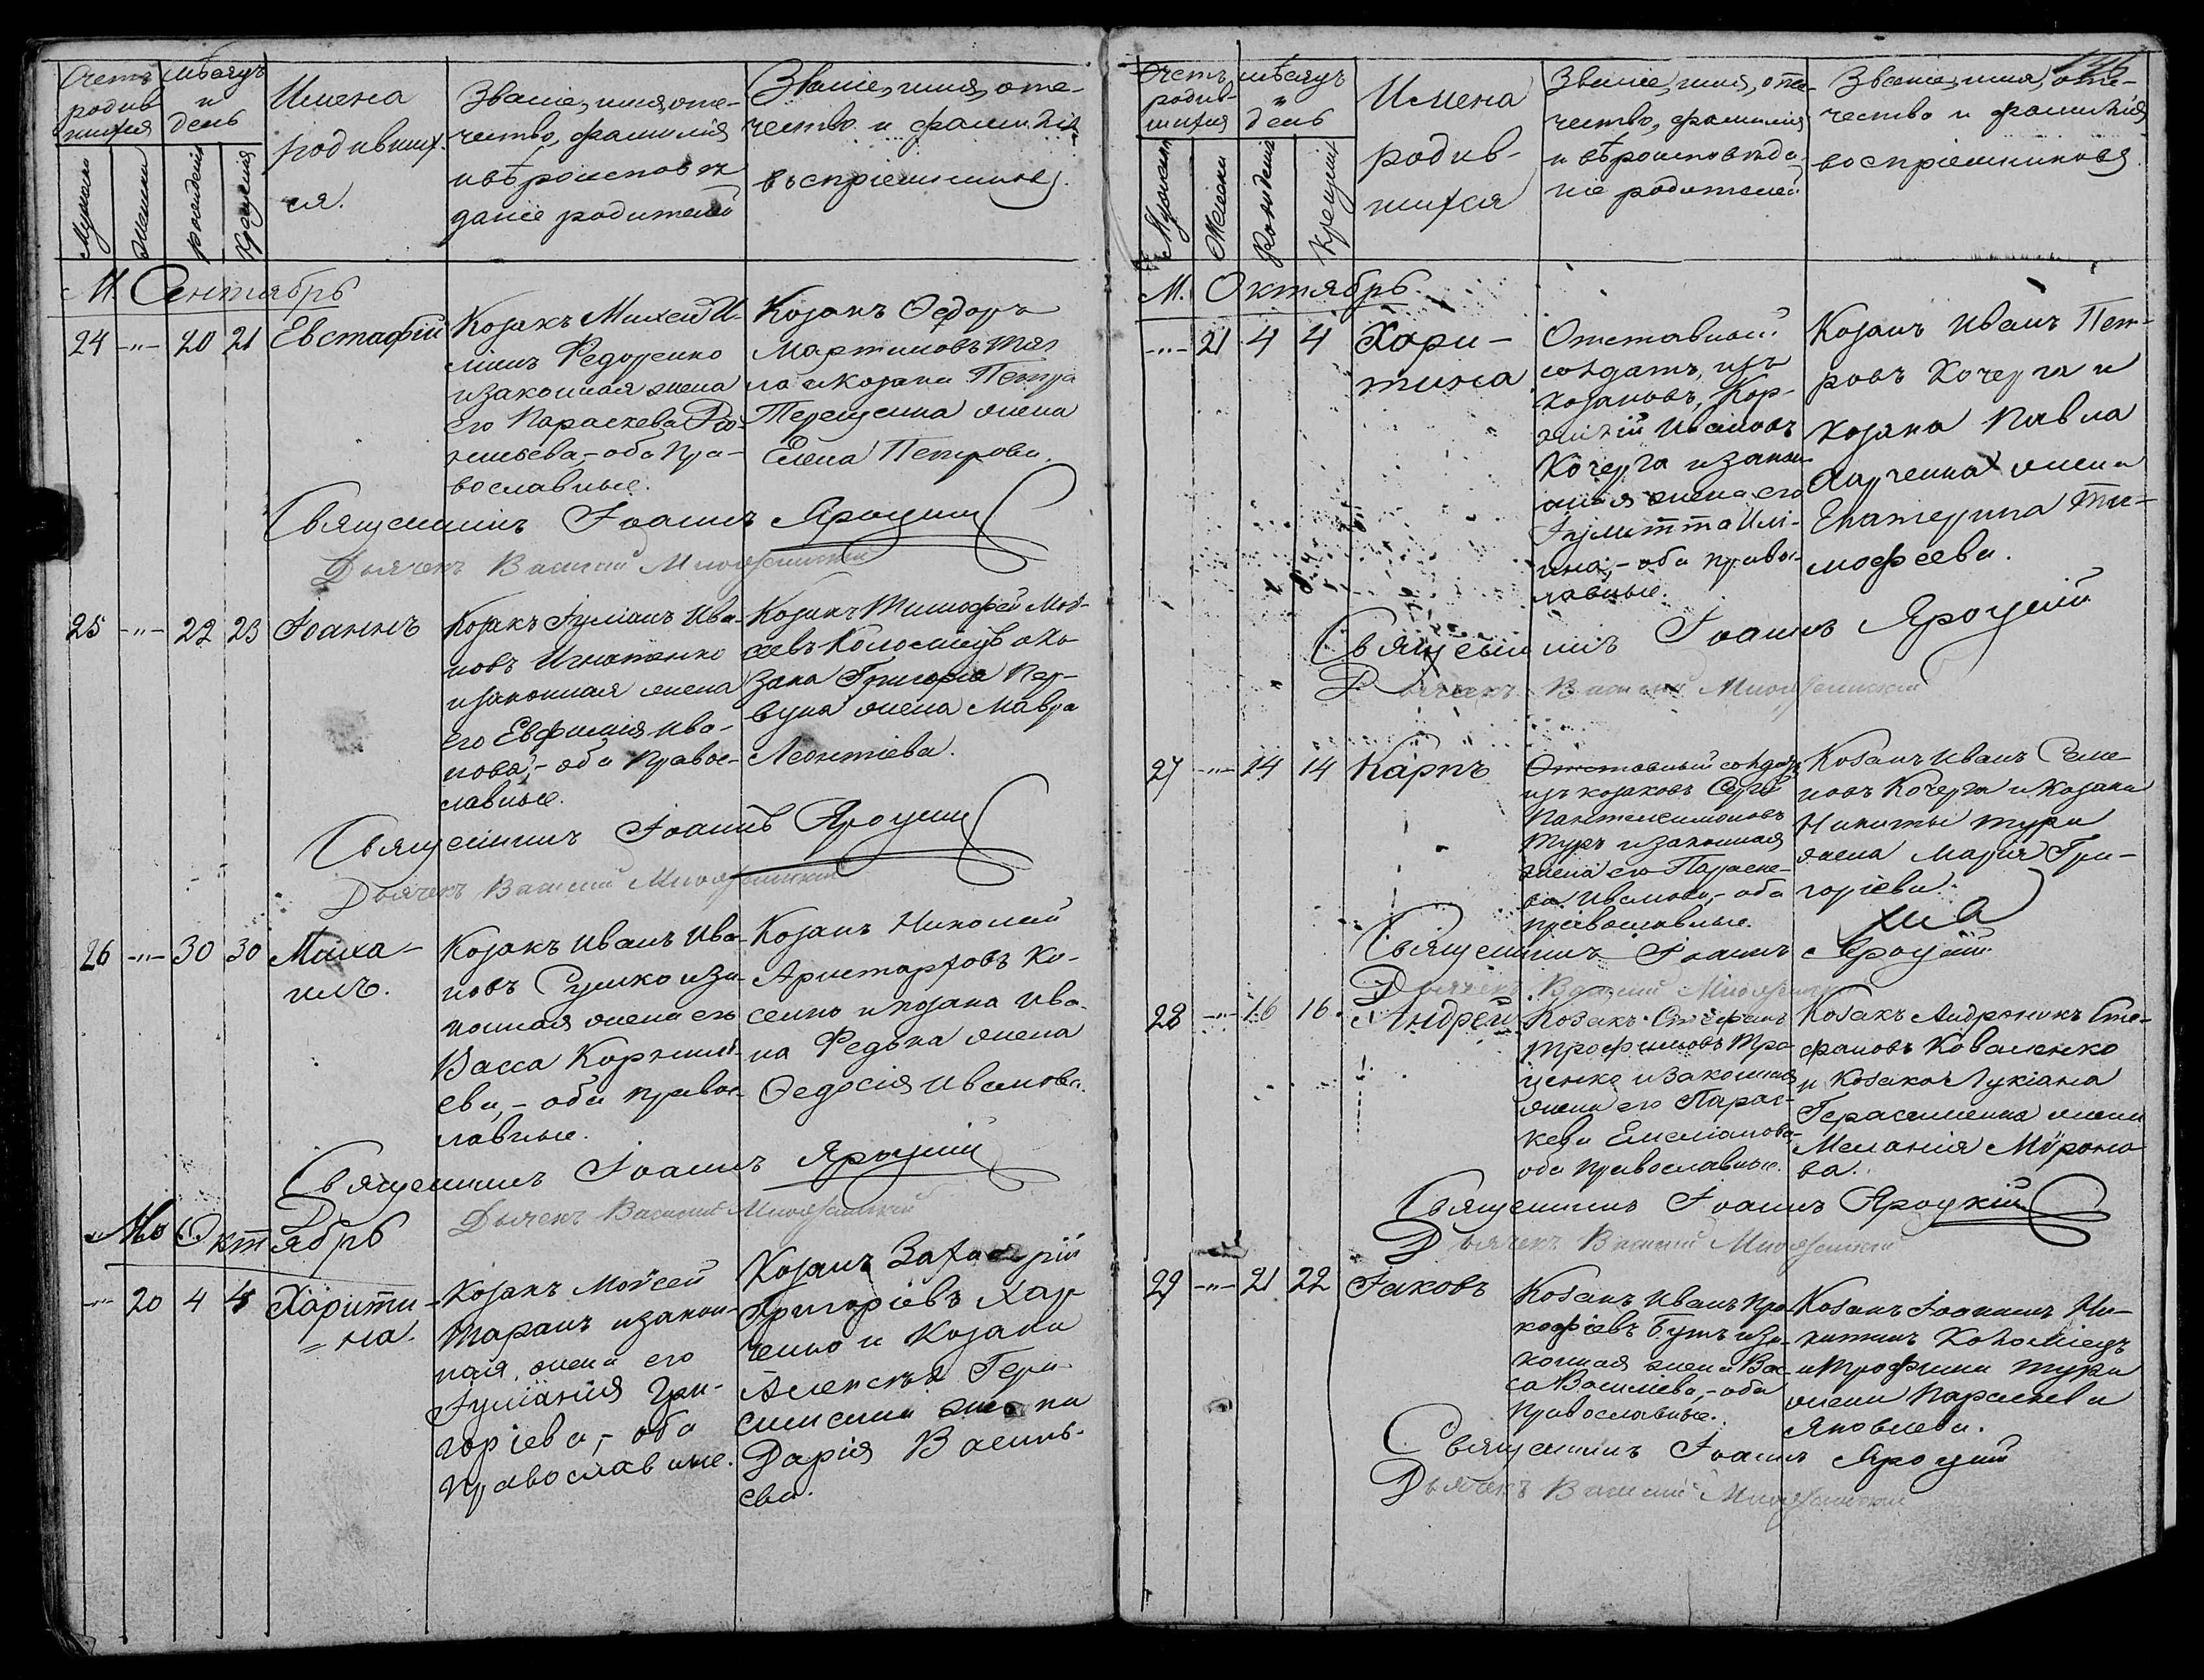 Счетъ родив шихся
мѣсяцъ и день
Имена
родивших
ся.
Званіе, имя, оте-
чество, фамилія
и вѣроисповѣ
даніе родителей
Званіе, имя, оте-
чество и фамилія
воспріемниковъ.
Мужеска
Женска
рожденія
Крещенія
М. Сентябрь
24 -"- 20 21 Евстафій
Козакъ Михей И-
Федоренко
и законная жена
его Параскева
оба Пра-
вославные.
Козакъ Ѳедоръ
Мартиновъ
козака Петра
Терещенка жена
Елена Петрова.
Священникъ Іоаннъ Яроцкій
Дьячекъ Василій
25 -"- 22 23 Іоаннъ
Козакъ Іуліанъ Ива-
новъ Игнатенко
и законная жена
его Евфимія Ива-
нова, - оба право-
славные.
Козакъ Тимофей Мой-
сеевъ Коломіецъ и ко
зака Григорія Пер-
вука жена Мавра
Леонтіева.
Священникъ Іоаннъ Яроцкій
Дьячекъ Василій
26 -"- 30 30 Миха-
илъ.
Козакъ Иванъ Ива-
новъ Сушко и за-
конная жена его
Васса Корнилі-
ева, - оба право-
славные.
Козакъ Николай
Аристарховъ Ко-
сенко и козака Ива-
на Федька жена
Ѳедосія Иванова.
Священникъ Іоаннъ Яроцкій
Дьячекъ Василій
М. Октябрь
-"- 20 4 4 Харити-
=на.
Козакъ Мойсей
Таранъ и закон-
ная жена его
Іуліанія Гри-
горіева, - оба
православные.
Козакъ Захарій
Григоріевъ Хар
ченко и Козака
Алексѣя Гера-
сименка жена
Дарія Василь-
ева.
146
Счетъ родив-
шихся
мѣсяцъ и день
Имена
родив-
шихся
Званіе, имя, оте-
чество, фамилія
и вѣроисповѣда-
ніе родителей
Званіе, имя, оте-
чество и фамилія
воспріемниковъ.
Мужеска
Женска
Рожденія
Крещенія
М. Октябрь.
-"- 21 4 4 Хари-
тина
Отставной
солдатъ, изъ
козаковъ, Кор-
нилій Ивановъ
Кочерга и закон-
ная жена его
Іулитта Илі-
ина, - оба право-
славные.
Козакъ Иванъ Пет-
ровъ Кочерга и
козака Павла
жена
Екатерина Ти-
мофеева.
Священникъ Іоаннъ Яроцкій
Дьячекъ Василій
27 -"- 14 14 Карпъ
Отставный солдатъ
изъ козаковъ Сергій
Пантелеимоновъ
Туръ и законная
жена его Параске-
ва Иванова, - оба
православные.
Козакъ Иванъ Семе-
новъ Кочерга и козака
Никиты Тура
жена Марія Гри-
горіева.
Священникъ Іоаннъ Яроцкій
Дьячекъ Василій
28 -"- 16 16. Андрей
Козакъ Стефанъ
Трофимовъ Тро-
ценко и законная
жена его Парас-
кева Емеліанова,
оба православные.
Козакъ Андроникъ Сте-
фановъ Коваленко
и Козака Лукіана
Герасименка жена
Меланія Миро­но-
ва.
Священникъ Іоаннъ Яроцкій
Дьячекъ Василій
29 -"- 21 22 Іаковъ
Козакъ Иванъ Про-
кофіевъ Бутъ и за-
конная жена Вас-
са Василіева, - оба
православные.
Козакъ Іоаннъ Ни-
китинъ Коломіецъ
и Трофима Тура
жена Параскева
Яковлева.
Священникъ Іоаннъ Яроцкій
Дьячекъ Василій